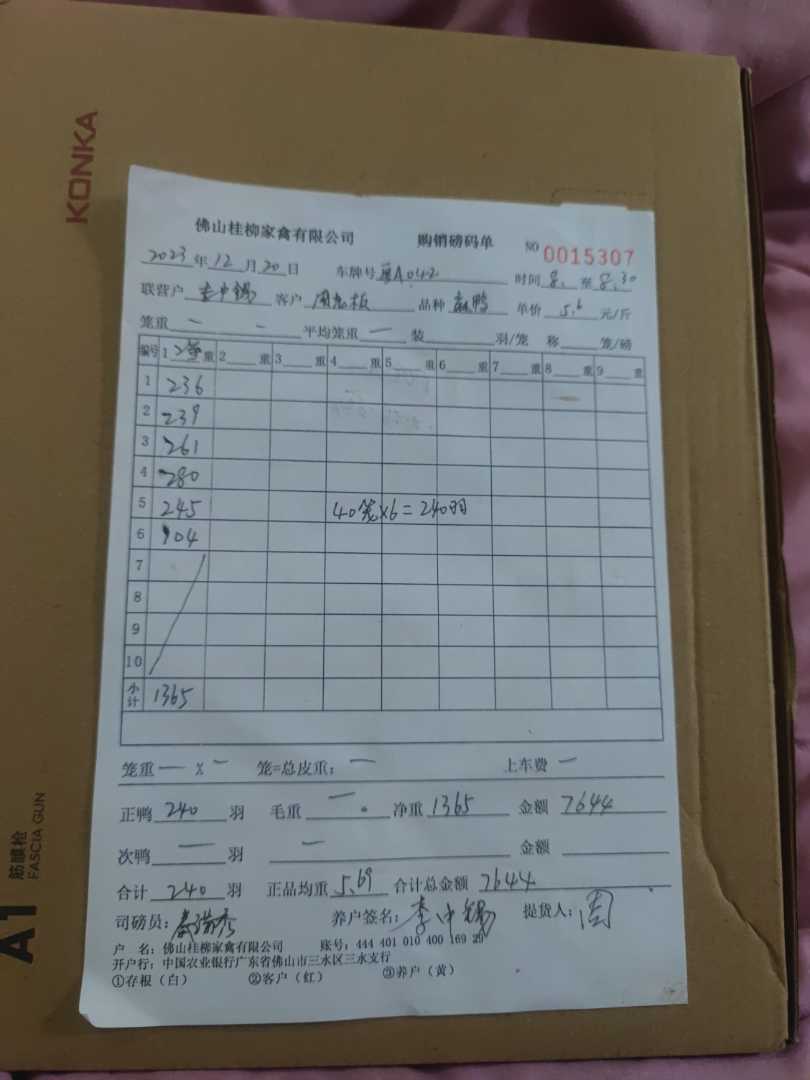 KONKA
佛山桂柳家禽有限公司 购销磅码单 NO 0015307
2023年12月20日 车牌号 粤A042 时间 8. 至 8.30
联营户 李中锡 客户 周老板 品种 单价 5.6 元/斤
笼重 一 - 平均笼重 一 装 羽/笼 称 笼/磅
编号 1 重 2 重 3 重 4 重 5 重 6 重 7 重 8 重 9 重
1 236
2 239
3 261
4 280
5 245 40笼×6=240羽
6 104
7
8
9
10
小计 1365
笼重 一 × 一 笼=总皮重: 一 上车费 一
正鸭 240 羽 毛重 一 净重 1365 金额 7644
次鸭 一 羽 一 金额
合计 240 羽 正品均重 5.69 合计总金额 7644
司磅员: 养户签名: 李中锡 提货人: 周
户 名: 佛山桂柳家禽有限公司 账号: 444 401 010 400 169 29
开户行: 中国农业银行广东省佛山市三水区三水支行
①存根(白) ②客户(红) ③养户(黄)
A1 筋膜枪
FASCIA GUN